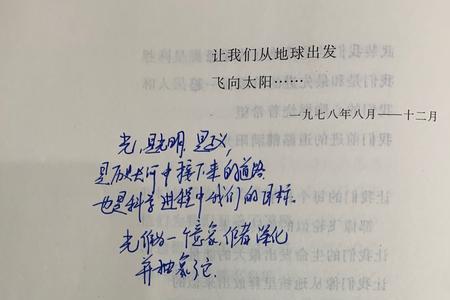 让我们从地球出发
飞向太阳……
一九七八年八月——十二月
光,是光明,是正义,
是历史长河中接下来的道路
也是科学进程中我们的目标.
光作为一个意象,作者深化
并抽象它.